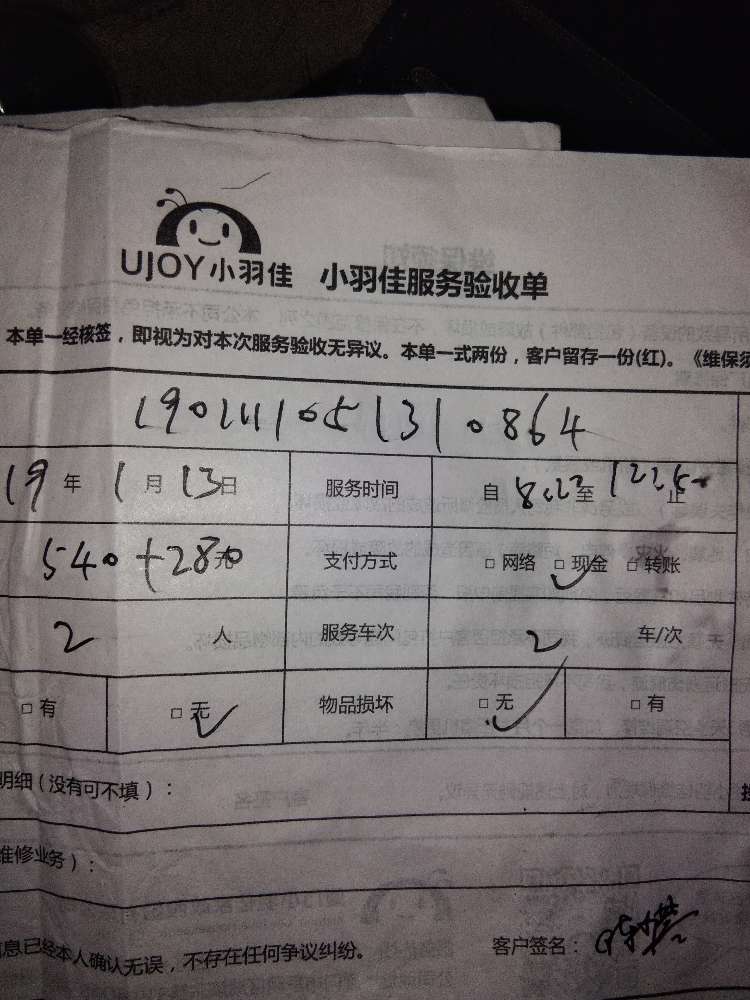 UJOY小羽佳 小羽佳服务验收单
本单一经核签，即视为对本次服务验收无异议。本单一式两份，客户留存一份(红)。《维保须
19年1月13日 服务时间 自8:23至12:50止
540+280元 支付方式 □网络 □现金 □转账
2人 服务车次 2车/次
□有 □无 物品损坏 □无 □有
明细（没有可不填）：
维修业务）：
息已经本人确认无误，不存在任何争议纠纷。 客户签名：